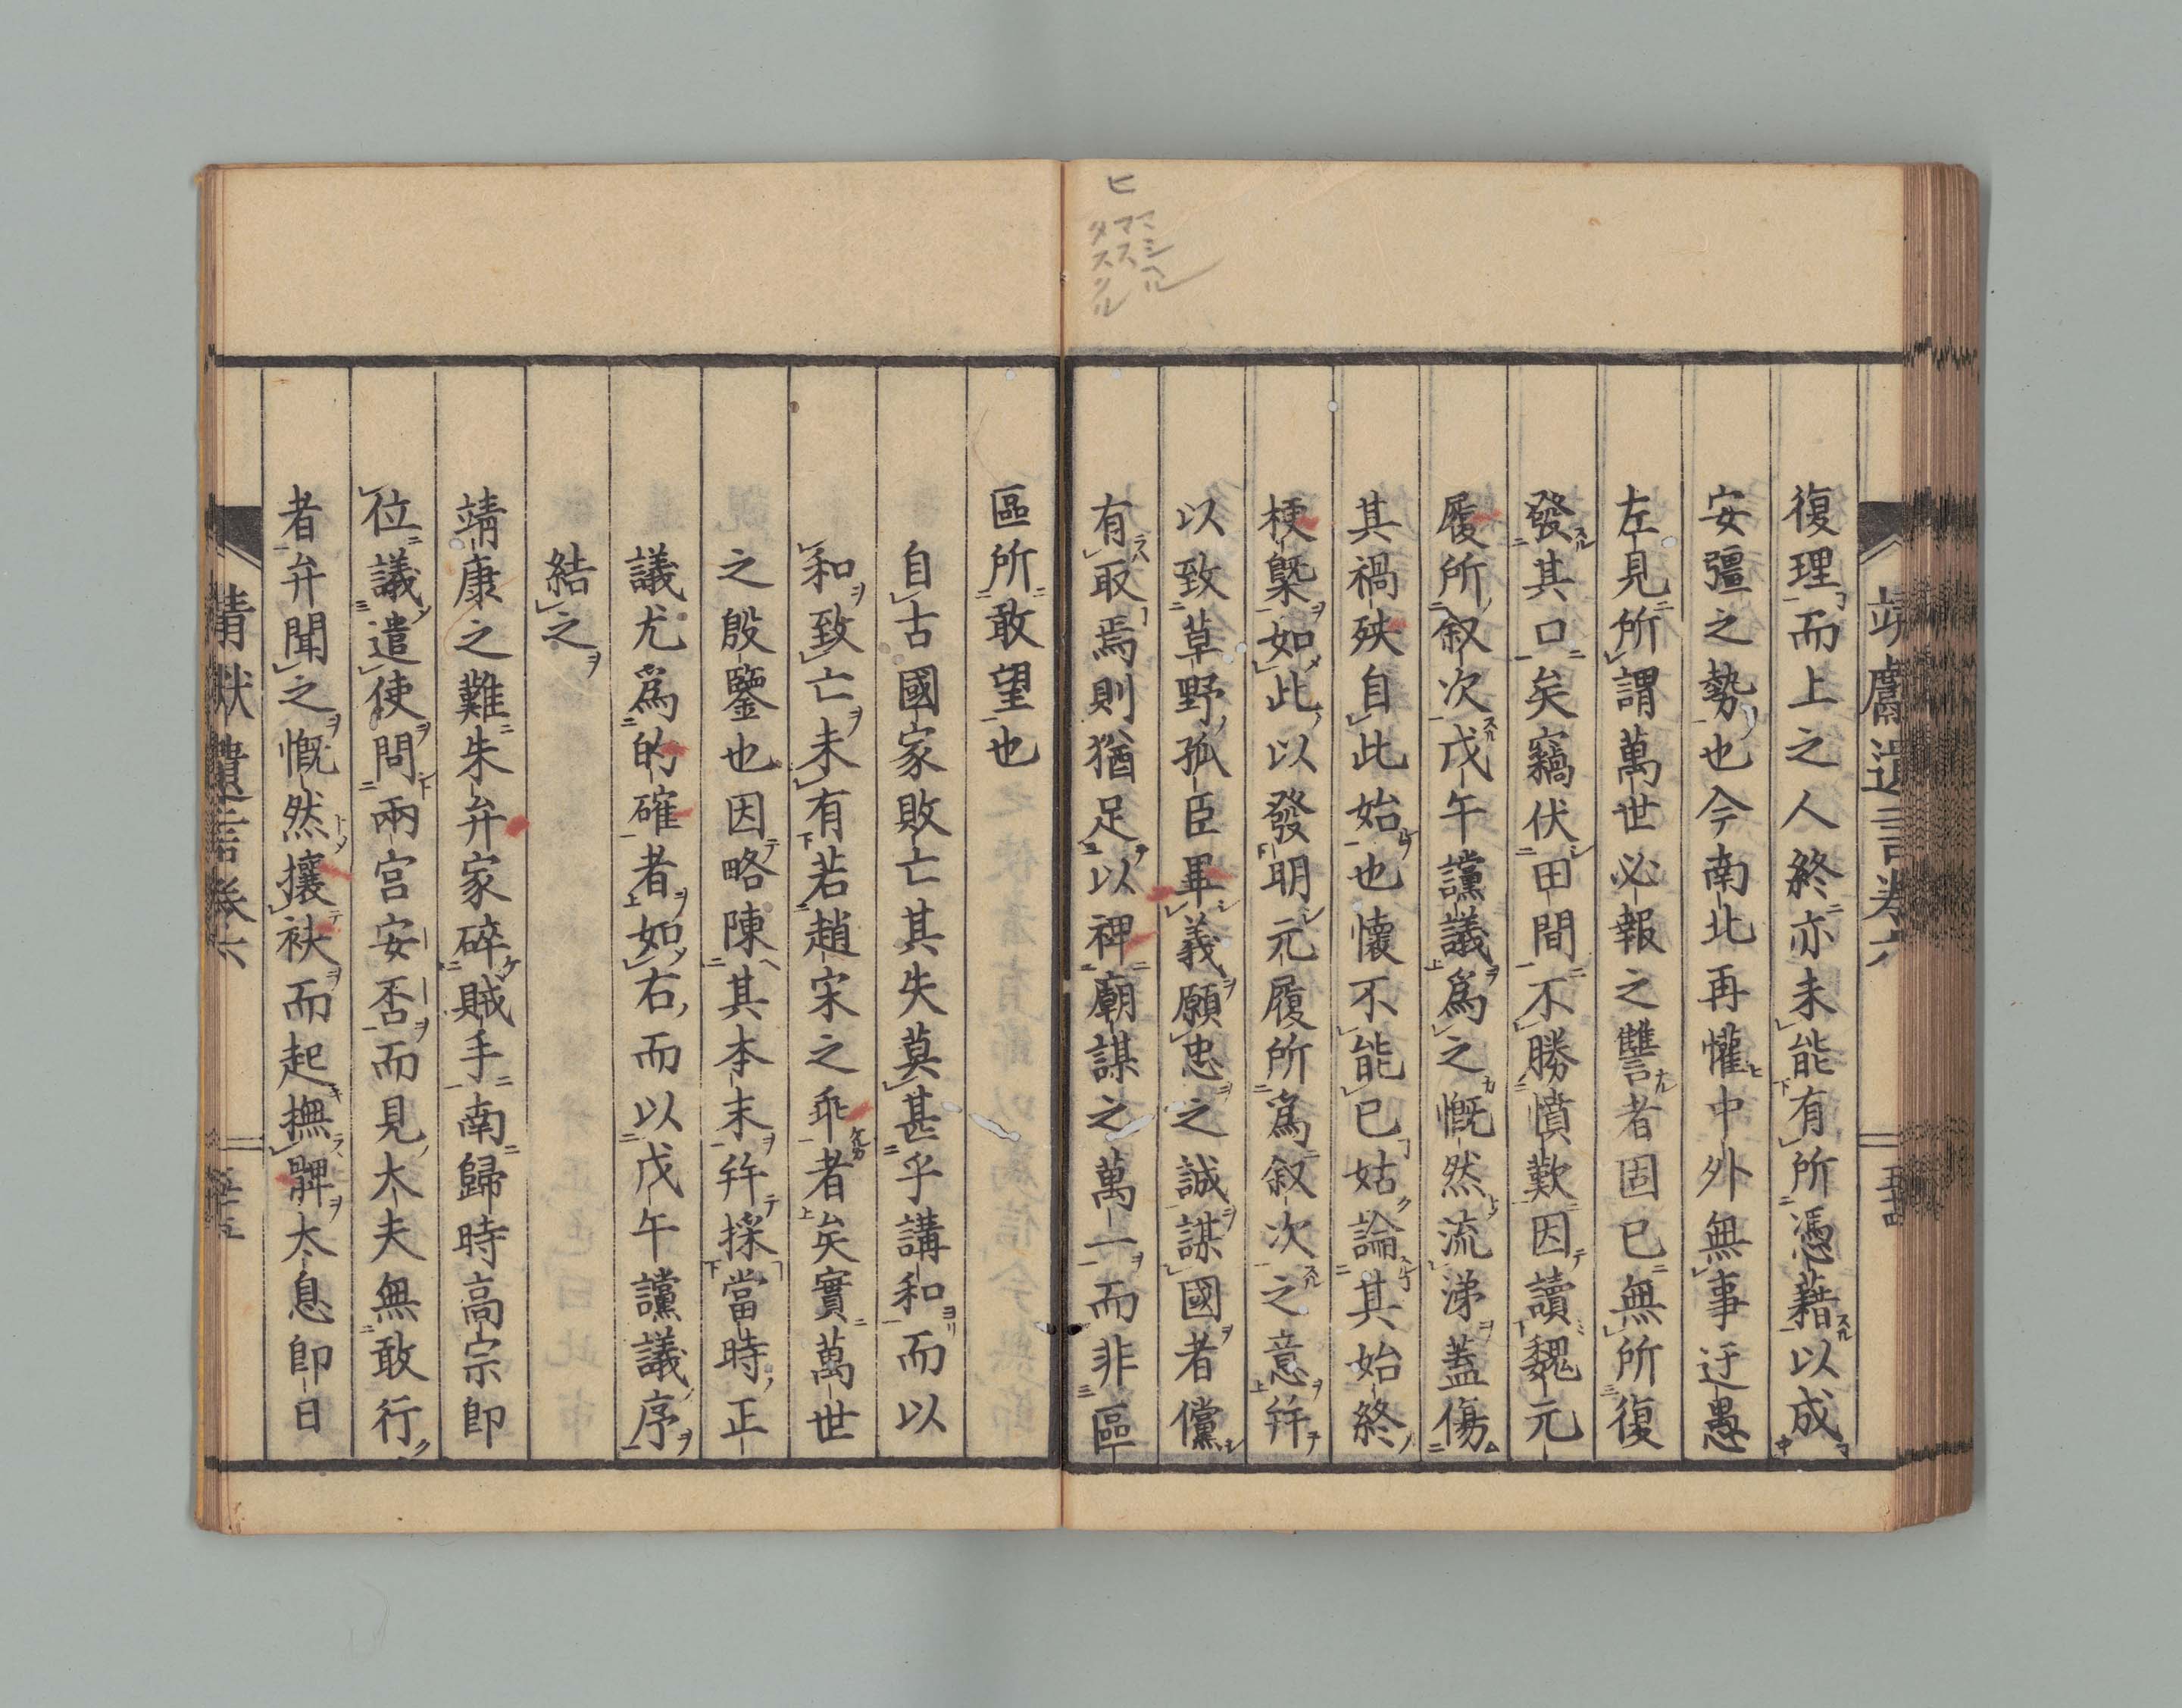 ヒ
マシヘル
マス
タスクル
靖獻遺言卷六
五十四
復理而上之人終亦未能有所憑藉以成
安彊之勢也今南北再懽中外無事迂愚
左見所謂萬世必報之讐者固已無所復
發其口矣竊伏田間不勝憤歎因讀魏元
履所叙次戊午讜議爲之慨然流涕蓋傷
其禍殃自此始也懷不能已姑論其始終
梗槩如此以發明元履所爲叙次之意幷
以致草野孤臣畢義願忠之誠謀國者儻
有取焉則猶足以裨廟謀之萬一而非區
區所敢望也
自古國家敗亡其失莫甚乎講和而以
和致亡未有若趙宋之乖者矣實萬世
之殷鑒也因略陳其本末幷採當時正
議尤爲的確者如右而以戊午讜議序
結之
靖康之難朱弁家碎賊手南歸時高宗卽
位議遣使問兩宮安否而見大夫無敢行
者弁聞之慨然攘袂而起撫髀太息卽日
靖獻遺言卷六
五十五